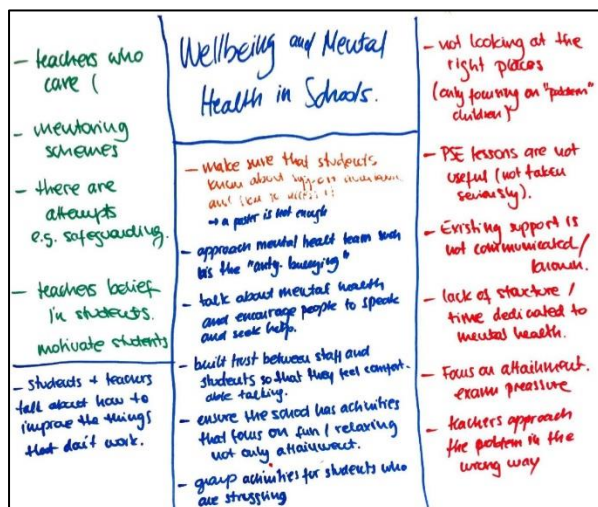 Wellbeing and Mental
Health in Schools.
- teachers who
care (
- mentoring
schemes
- there are
attempts
e.g. safeguarding.
- teachers belief
in students.
motivate students
- students + teachers
talk about how to
improve the things
that don't work.
- make sure that students
know about
and
→ a poster is not enough
- approach mental healt team such
as the "anty. bullying"
- talk about mental health
and encourage people to speak
and seek help.
- built trust between staff and
students so that they feel comfort-
able talking.
- ensure the school has activities
that focus on fun / relaxing
not only attainment.
- group activities for students who
are struggling
- not looking at the
right places
(only focusing on "problem"
children)
- PSE lessons are not
useful (not taken
seriously).
- Existing support is
not communicated /
known.
- lack of structure /
time dedicated to
mental health.
- Focus on attainment.
exam pressure
- teachers approach
the problem in the
wrong way